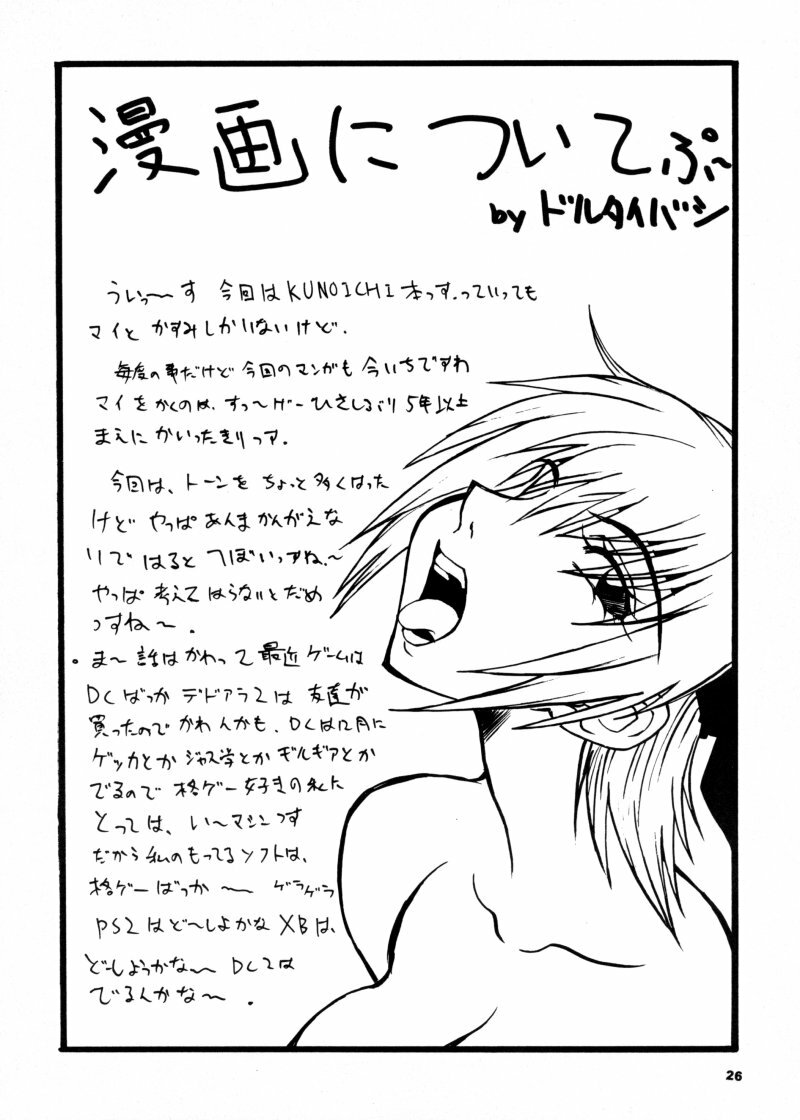 漫画についてぷ〜
by ドルタイバシ
ういっ〜す 今回は KUNOICHI 本っす。っていっても
マイと かすみしかいないけど.
毎度の事だけど 今回のマンガも 今いちですわ
マイをかくのは、すっ〜げーひさしぶり 5年以上
まえに かいったきりっす.
今回は、トーンを ちょっと多くはった
けど やっぱ あんま かんがえな
いで はると つぼいっすね、〜
やっぱ 考えて はらないとだめ
っすね〜.
・ま〜 話は かわって 最近 ゲームは
DCばっか デドアラ2は 友達が
買ったので かわんかも、DCは12月に
ゲッカとか ジャス学とか ギルギアとか
でるので 格ゲー好きの私に
とっては、い〜マシンっす
だから 私のもってるソフトは、
格ゲーばっか 〜 ゲラゲラ
PS2は ど〜しよかな XBは、
ど〜しようかな〜 DC2は
でるんかな〜 .
26